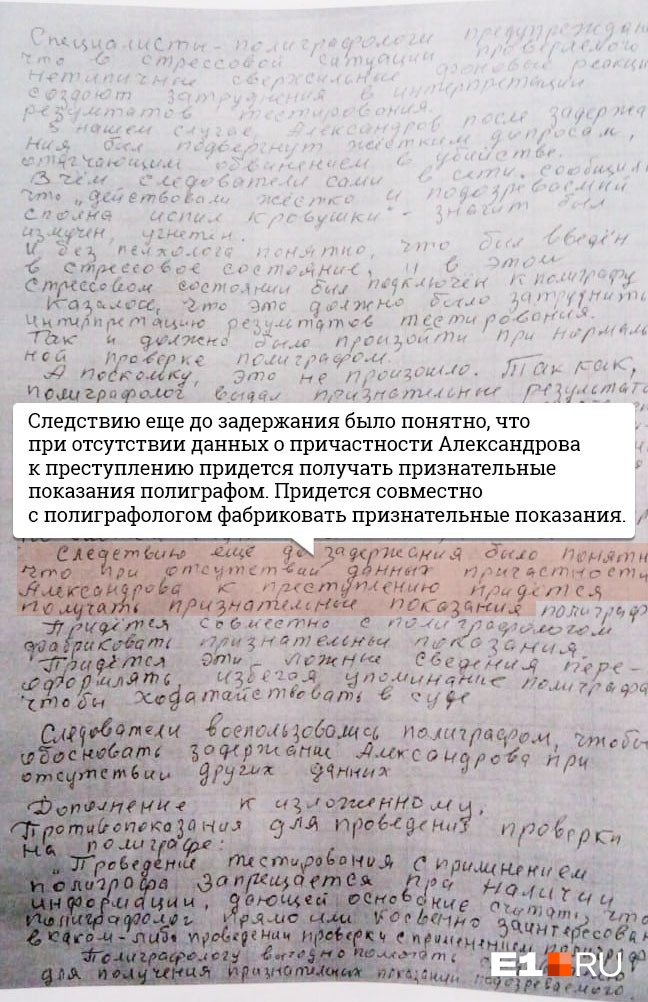 Специалисты-полиграфологи предупреждаю
что в стрессовой ситуации проверяемого
нетипичные сверхсильные фоновые реакци
создают затруднения в интерпретации
результатов тестирования.
В нашем случае, Александров после задержа
ния был подвергнут жёстким допросам,
отягчающим обвинением в убийстве.
В чём следователи сами в сети сообщили
что "действовали жёстко и подозреваемый
сполна испил кровушки" - значит был
измучен, угнетён.
И без психолога понятно, что был введён
в стрессовое состояние, и в этом
стрессовом состоянии был подключён к полиграфу
Казалось, что это должно было затруднить
интерпретацию результатов тестирования.
Так и должно было произойти при нормаль
ной проверке полиграфом.
А поскольку, это не произошло. Так как,
полиграфолог выдал признательные результаты
Следствию еще до задержания было понятно, что
при отсутствии данных о причастности Александрова
к преступлению придется получать признательные
показания полиграфом. Придется совместно
с полиграфологом фабриковать признательные показания.
Следствию ещё до задержания было понятн
что при отсутствии данных причастности
Александрова к преступлению придётся
получать признательные показания полиграф
Придётся совместно с полиграфологом
фабриковать признательные показания.
Придётся эти ложные сведения пере-
оформлять, избегая упоминание полиграфа
чтобы ходатайствовать в суде
Следователи воспользовались полиграфом, чтобы
обосновать задержание Александрова при
отсутствии других данных
Дополнение к изложенному.
Противопоказания для проведения проверки
на полиграфе:
"Проведение тестирования с применением
полиграфа запрещается при наличии
информации, дающей основание считать, что
полиграфолог прямо или косвенно заинтересован
в каком-либо проведении проверки с применением полиграф
Полиграфологу выгодно помогать
для получения признательных показаний подозреваемого.
E1.RU